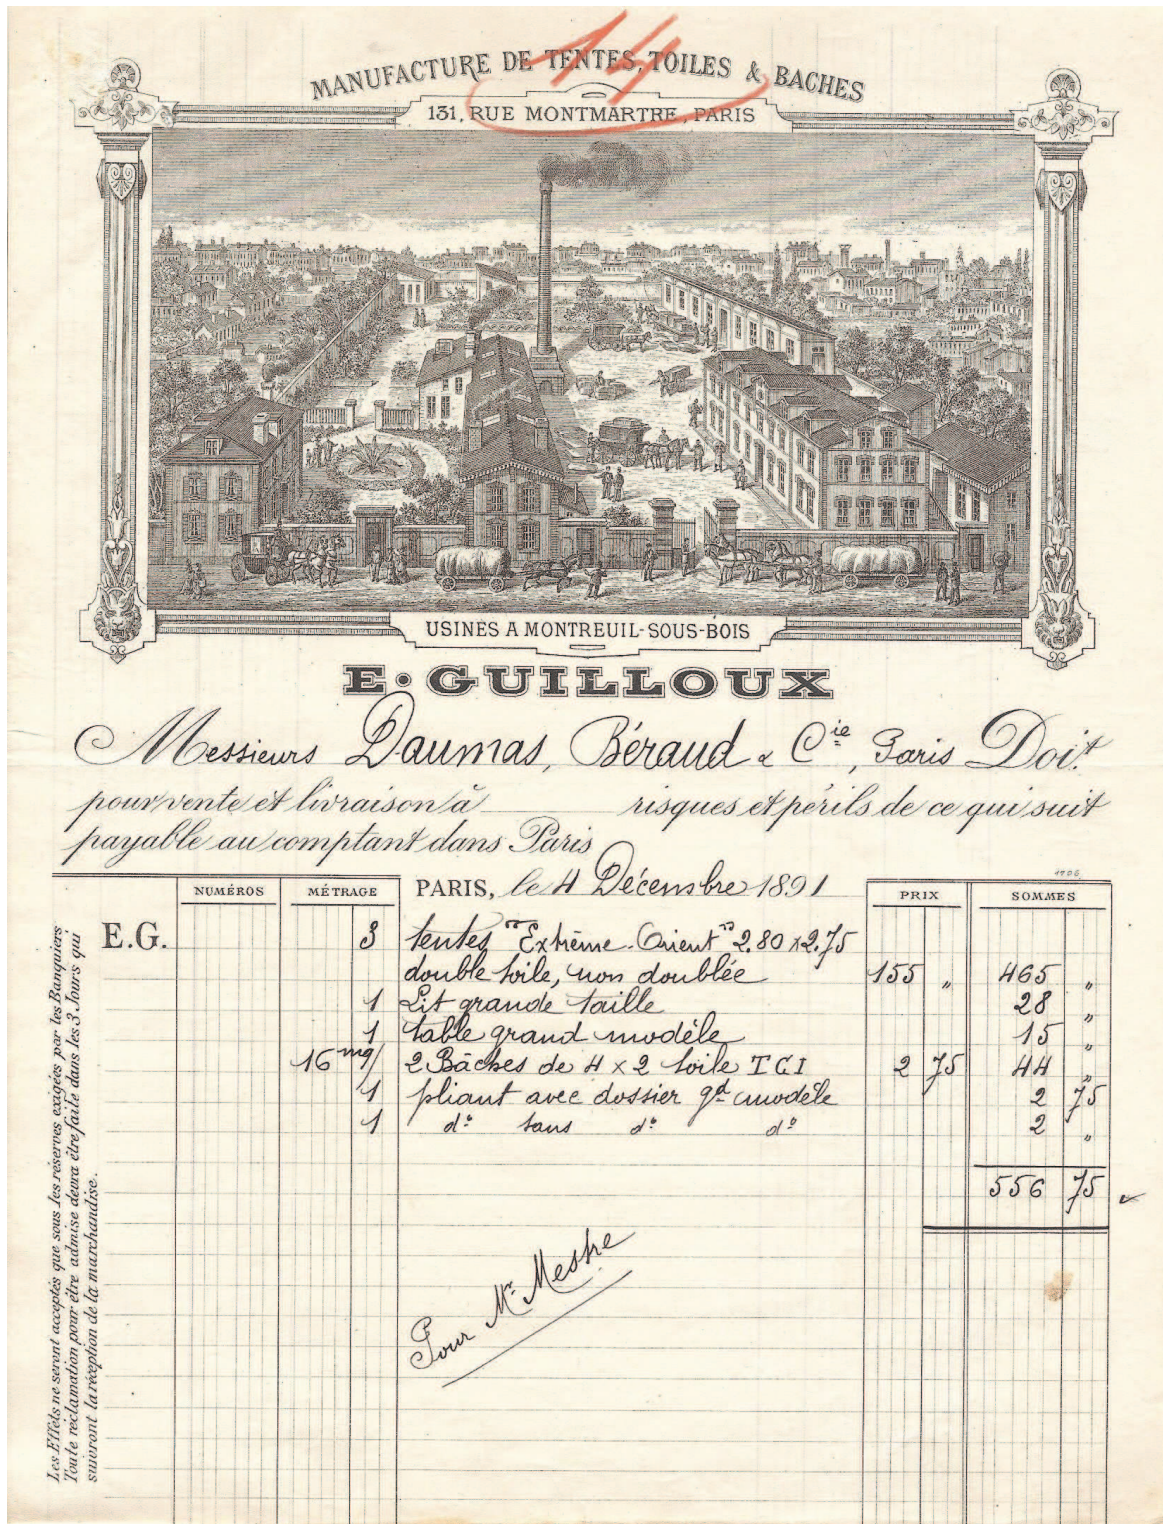 14
MANUFACTURE DE TENTES, TOILES & BACHES
131, RUE MONTMARTRE, PARIS
USINES A MONTREUIL-SOUS-BOIS
E. GUILLOUX
Messieurs Daumas, Béraud & Cie, Paris Doit
pour vente et livraison à risques et périls de ce qui suit
payable au comptant dans Paris
NUMÉROS MÉTRAGE PARIS, le 4 Décembre 1891 PRIX SOMMES
E.G. 3 tentes "Extrême-Orient" 2.80 x 2.75
double toile, non doublée 155 " 465 "
1 Lit grande taille 28 "
1 table grand modèle 15 "
16 mq/ 2 Bâches de 4 x 2 toile TCI 2 75 44 "
1 pliant avec dossier gd modèle 2 75
1 do sans do do 2 "
556 75
Pour Mr Mestre
Les Effets ne seront acceptés que sous les réserves exigées par les Banquiers
Toute réclamation pour être admise devra être faite dans les 3 Jours qui
suivront la réception de la marchandise.